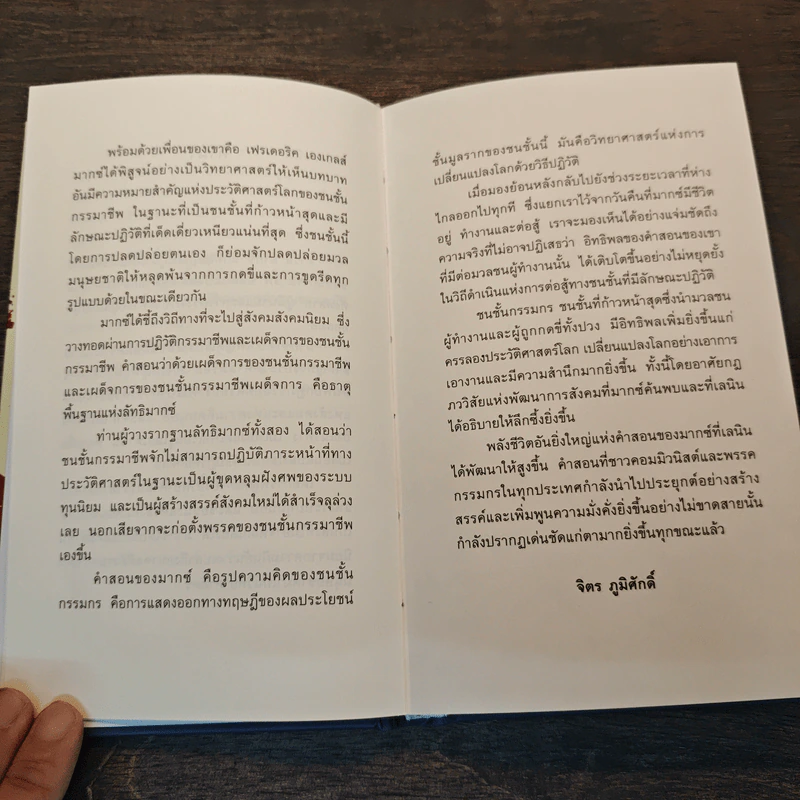 พร้อมด้วยเพื่อนของเขาคือ เฟรเดอริค เองเกลส์
มากซ์ได้พิสูจน์อย่างเป็นวิทยาศาสตร์ให้เห็นบทบาท
อันมีความหมายสำคัญแห่งประวัติศาสตร์โลกของชนชั้น
กรรมาชีพ ในฐานะที่เป็นชนชั้นที่ก้าวหน้าสุดและมี
ลักษณะปฏิวัติที่เด็ดเดี่ยวเหนียวแน่นที่สุด ซึ่งชนชั้นนี้
โดยการปลดปล่อยตนเอง ก็ย่อมจักปลดปล่อยมวล
มนุษยชาติให้หลุดพ้นจากการกดขี่และการขูดรีดทุก
รูปแบบด้วยในขณะเดียวกัน
มากซ์ได้ชี้ถึงวิถีทางที่จะไปสู่สังคมสังคมนิยม ซึ่ง
วางทอดผ่านการปฏิวัติกรรมาชีพและเผด็จการของชนชั้น
กรรมาชีพ คำสอนว่าด้วยเผด็จการของชนชั้นกรรมาชีพ
และเผด็จการของชนชั้นกรรมาชีพเผด็จการ คือธาตุ
พื้นฐานแห่งลัทธิมากซ์
ท่านผู้วางรากฐานลัทธิมากซ์ทั้งสอง ได้สอนว่า
ชนชั้นกรรมาชีพจักไม่สามารถปฏิบัติภาระหน้าที่ทาง
ประวัติศาสตร์ในฐานะเป็นผู้ขุดหลุมฝังศพของระบบ
ทุนนิยม และเป็นผู้สร้างสรรค์สังคมใหม่ได้สำเร็จลุล่วง
เลย นอกเสียจากจะก่อตั้งพรรคของชนชั้นกรรมาชีพ
เองขึ้น
คำสอนของมากซ์ คือรูปความคิดของชนชั้น
กรรมกร คือการแสดงออกทางทฤษฎีของผลประโยชน์
ชั้นมูลรากของชนชั้นนี้ มันคือวิทยาศาสตร์แห่งการ
เปลี่ยนแปลงโลกด้วยวิธีปฏิวัติ
เมื่อมองย้อนหลังกลับไปยังช่วงระยะเวลาที่ห่าง
ไกลออกไปทุกที ซึ่งแยกเราไว้จากวันคืนที่มากซ์มีชีวิต
อยู่ ทำงานและต่อสู้ เราจะมองเห็นได้อย่างแจ่มชัดถึง
ความจริงที่ไม่อาจปฏิเสธว่า อิทธิพลของคำสอนของเขา
ที่มีต่อมวลชนผู้ทำงานนั้น ได้เติบโตขึ้นอย่างไม่หยุดยั้ง
ในวิถีดำเนินแห่งการต่อสู้ทางชนชั้นที่มีลักษณะปฏิวัติ
ชนชั้นกรรมกร ชนชั้นที่ก้าวหน้าสุดซึ่งนำมวลชน
ผู้ทำงานและผู้ถูกกดขี่ทั้งปวง มีอิทธิพลเพิ่มยิ่งขึ้นแก่
ครรลองประวัติศาสตร์โลก เปลี่ยนแปลงโลกอย่างเอาการ
เอางานและมีความสำนึกมากยิ่งขึ้น ทั้งนี้โดยอาศัยกฎ
ภววิสัยแห่งพัฒนาการสังคมที่มากซ์ค้นพบและที่เลนิน
ได้อธิบายให้ลึกซึ้งยิ่งขึ้น
พลังชีวิตอันยิ่งใหญ่แห่งคำสอนของมากซ์ที่เลนิน
ได้พัฒนาให้สูงขึ้น คำสอนที่ชาวคอมมิวนิสต์และพรรค
กรรมกรในทุกประเทศกำลังนำไปประยุกต์อย่างสร้าง
สรรค์และเพิ่มพูนความมั่งคั่งยิ่งขึ้นอย่างไม่ขาดสายนั้น
กำลังปรากฏเด่นชัดแก่ตามากยิ่งขึ้นทุกขณะแล้ว
จิตร ภูมิศักดิ์